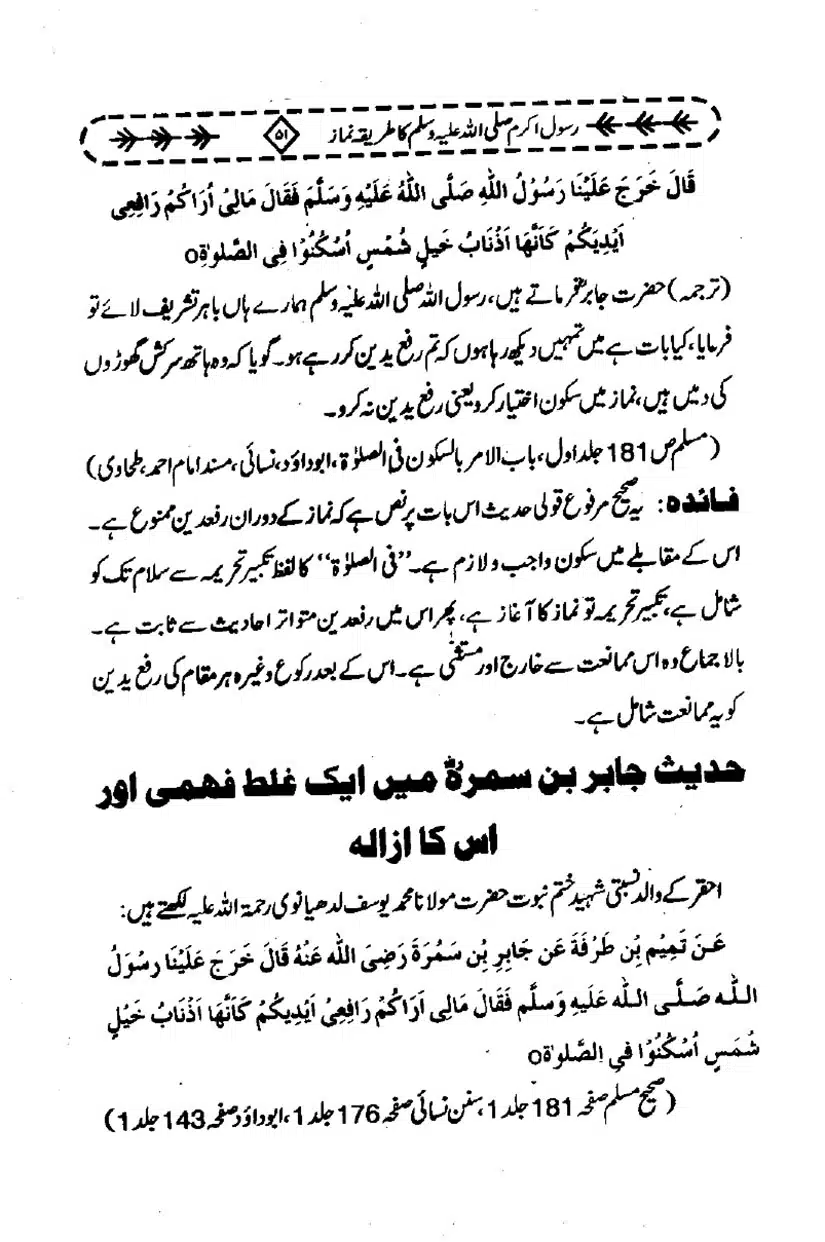 رسول اکرم صلی اللہ علیہ وسلم کا طریقہ نماز ۵۱
قَالَ خَرَجَ عَلَیْنَا رَسُوْلُ اللهِ صَلَّی اللهُ عَلَیْهِ وَسَلَّمَ فَقَالَ مَالِیْ اُرَاکُمْ رَافِعِی
اَیْدِیَکُمْ کَاَنَّهَا اَذْنَابُ خَیلٍ شُمْسٍ اُسْکُنُوْا فِی الصَّلوٰةِO
(ترجمہ) حضرت جابرؓ فرماتے ہیں، رسول اللہ صلی اللہ علیہ وسلم ہمارے ہاں باہر تشریف لائے تو
فرمایا، کیا بات ہے میں تمہیں دیکھ رہا ہوں کہ تم رفع یدین کر رہے ہو۔ گویا کہ وہ ہاتھ سرکش گھوڑوں
کی دمیں ہیں، نماز میں سکون اختیار کرو یعنی رفع یدین نہ کرو۔
(مسلم ص 181 جلد اول، باب الامر بالسکون فی الصلوٰۃ، ابوداؤد، نسائی، مسند امام احمد، طحاوی)
فائدہ: یہ صحیح مرفوع قولی حدیث اس بات پر نص ہے کہ نماز کے دوران رفعدین ممنوع ہے۔
اس کے مقابلے میں سکون واجب و لازم ہے۔ ”فی الصلوٰۃ“ کا لفظ تکبیر تحریمہ سے سلام تک کو
شامل ہے، تکبیر تحریمہ تو نماز کا آغاز ہے، پھر اس میں رفعدین متواتر احادیث سے ثابت ہے۔
بالاجماع وہ اس ممانعت سے خارج اور مستثنٰی ہے۔ اس کے بعد رکوع وغیرہ ہر مقام کی رفع یدین
کو یہ ممانعت شامل ہے۔
حدیث جابر بن سمرہؓ میں ایک غلط فہمی اور
اس کا ازالہ
احقر کے والد نسبتی شہید ختم نبوت حضرت مولانا محمد یوسف لدھیانوی رحمۃ اللہ علیہ لکھتے ہیں:
عَنْ تَمِیْمِ بْنِ طَرْفَةَ عَن جَابِرِ بْنِ سَمُرَةَ رَضِیَ الله عَنْهُ قَالَ خَرَجَ عَلَیْنَا رسُوْلُ
الله صَلَّی الله عَلَیهِ وَسلَّم فَقَالَ مَالِی اَرَاکُمْ رَافِعِیْ اَیْدِیکُمْ کَاَنَّهَا اَذْنَابُ خَیْلٍ
شُمَسٍ اُسْکُنُوْا فِی الصَّلوٰةO
(صحیح مسلم صفحہ 181 جلد 1، سنن نسائی صفحہ 176 جلد 1، ابوداؤد صفحہ 143 جلد 1)